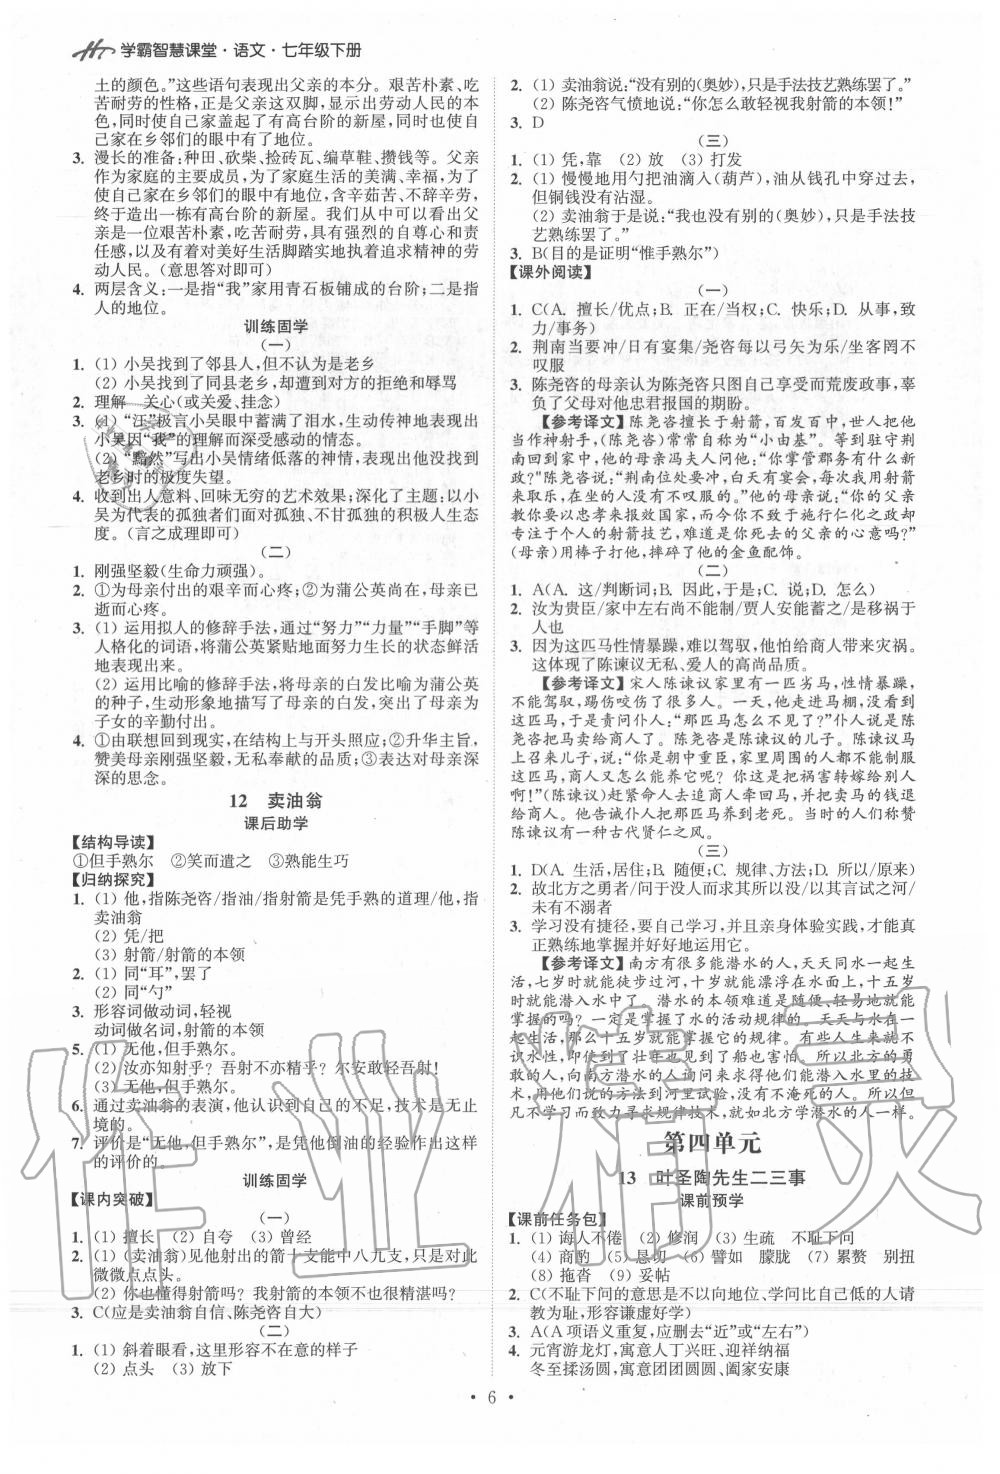 学霸智慧课堂·语文·七年级下册
土的颜色。”这些语句表现出父亲的本分。艰苦朴素、吃
苦耐劳的性格，正是父亲这双脚，显示出劳动人民的本
色，同时使自己家盖起了有高台阶的新屋，同时使自
己家在乡邻们的眼中有了地位。
3. 漫长的准备：种田、砍柴、捡砖瓦、编草鞋、攒钱等。父亲
作为家庭的主要成员，为了家庭生活的美满、幸福，为了
自己家在乡邻们的眼中有地位，含辛茹苦、不辞辛劳，
终于造出一栋有高台阶的新屋。我们从中可以看出父
亲是一位艰苦朴素，吃苦耐劳，具有强烈的自尊心和责
任感，以及有着对美好生活脚踏实地执着追求精神的劳
动人民。(意思答对即可)
4. 两层含义：一是指“我”家用青石板铺成的台阶；二是指
人的地位。
训练固学
(一)
1. (1) 小吴找到了邻县人，但不认为是老乡
(2) 小吴找到了同县老乡，却遭到对方的拒绝和辱骂
2. 理解　关心(或关爱、挂念)
3. (1) “汪”极言小吴眼中蓄满了泪水，生动传神地表现出
小吴因“我”的理解而深受感动的情态。
(2) “黯然”写出小吴情绪低落的神情，表现出他没找到
老乡时的极度失望。
4. 收到出人意料、回味无穷的艺术效果；深化了主题：以小
吴为代表的孤独者们面对孤独、不甘孤独的积极人生态
度。(言之成理即可)
(二)
1. 刚强坚毅(生命力顽强)。
2. ①为母亲付出的艰辛而心疼；②为蒲公英尚在，母亲已
逝而心疼。
3. (1) 运用拟人的修辞手法，通过“努力”“力量”“手脚”等
人格化的词语，将蒲公英紧贴地面努力生长的状态鲜活
地表现出来。
(2) 运用比喻的修辞手法，将母亲的白发比成蒲公英
的种子，生动形象地描写了母亲的白发，突出了母亲为
子女的辛勤付出。
4. ①由联想回到现实，在结构上与开头照应；②升华主旨，
赞美母亲刚强坚毅，无私奉献的品质；③表达对母亲深
深的思念。
12　卖油翁
课后助学
【结构导读】
①但手熟尔　②笑而遣之　③熟能生巧
【归纳探究】
1. (1) 他，指陈尧咨/指油/指射箭是凭手熟的道理/他，指
卖油翁
(2) 凭/把
(3) 射箭/射箭的本领
2. (1) 同“耳”，罢了
(2) 同“勺”
3. 形容词做动词，轻视
动词做名词，射箭的本领
5. (1) 无他，但手熟尔。
(2) 汝亦知射乎？吾射不亦精乎？尔安敢轻吾射！
(3) 无他，但手熟尔。
6. 通过卖油翁的表演，他认识到自己的不足，技术是无止
境的。
7. 评价是“无他，但手熟尔”，是凭他倒油的经验作出这样
的评价的。
训练固学
【课内突破】
(一)
1. (1) 擅长　(2) 自夸　(3) 曾经
2. (1) (卖油翁)见他射出的箭十支能中八九支，只是对此
微微点点头。
(2) 你也懂得射箭吗？我射箭的本领不也很精湛吗？
3. C(应是卖油翁自信、陈尧咨自大)
(二)
1. (1) 斜着眼看，这里形容不在意的样子
(2) 点头　(3) 放下
2. (1) 卖油翁说：“没有别的(奥妙)，只是手法技艺熟练罢了。”
(2) 陈尧咨气愤地说：“你怎么敢轻视我射箭的本领！”
3. D
(三)
1. (1) 凭，靠　(2) 放　(3) 打发
2. (1) 慢慢地用勺把油滴入(葫芦)，油从钱孔中穿过去，
但铜钱没有沾湿。
(2) 卖油翁于是说：“我也没有别的(奥妙)，只是手法技
艺熟练罢了。”
3. B(目的是证明“惟手熟尔”)
【课外阅读】
(一)
1. C(A. 擅长/优点；B. 正在/当权；C. 快乐；D. 从事，致
力/事务)
2. 荆南当要冲/日有宴集/尧咨每以弓矢为乐/坐客罔不
叹服
3. 陈尧咨的母亲认为陈尧咨只图自己享受而荒废政事，辜
负了父母对他忠君报国的期盼。
【参考译文】陈尧咨擅长于射箭，百发百中，世人把他
当作神射手，(陈尧咨)常常自称为“小由基”。等到驻守荆
南回到家中，他的母亲冯夫人问他：“你掌管郡务有什么新
政？”陈尧咨说：“荆南位处要冲，白天有宴会，每次我用射箭
来取乐，在坐的人没有不叹服的。”他的母亲说：“你的父亲
教你要以忠孝来报效国家，而今你不致力于施行仁化之政却
专注于个人的射箭技艺，难道是你死去的父亲的心意吗？”
(母亲)用棒子打他，摔碎了他的金鱼配饰。
(二)
1. A(A. 这/判断词；B. 因此，于是；C. 说；D. 怎么)
2. 汝为贵臣/家中左右尚不能制/贾人安能蓄之/是移祸于
人也
3. 因为这匹马性情暴躁，难以驾驭，他怕给商人带来灾祸。
这体现了陈谏议无私、爱人的高尚品质。
【参考译文】宋人陈谏议家里有一匹劣马，性情暴躁，
不能驾驭，踢伤咬伤了很多人。一天，他走进马棚，没看到
这匹马，于是责问仆人：“那匹马怎么不见了？”仆人说是陈
尧咨把马卖给商人了。陈尧咨是陈谏议的儿子。陈谏议马
上召来儿子，说：“你是朝中重臣，家里周围的人都不能制服
这匹马，商人又怎么能养它呢？你这是把祸害转嫁给别人
啊！”(陈谏议)赶紧命人去追商人牵回马，并把卖马的钱退
给商人。他告诫仆人把那匹马养到老死。当时的人们称赞
陈谏议有一种古代贤仁之风。
(三)
1. D(A. 生活，居住；B. 随便；C. 规律、方法；D. 所以/原来)
2. 故北方之勇者/问于没人而求其所以没/以其言试之河/
未有不溺者
3. 学习没有捷径，要自己学习，并且亲身体验实践，才能真
正熟练地掌握并好好地运用它。
【参考译文】南方有很多能潜水的人，天天同水一起生
活，七岁时就能趟过河，十岁就能漂浮在水面上，十五岁
时就能潜入水中了。潜水的本领难道是随便、轻易地就能
掌握的吗？一定是掌握了水的活动规律的。天天与水在一
起生活，那么十五岁就能掌握它的规律。有些人生来就不
识水性，即使到了壮年也见到了船也害怕。所以北方的勇
敢的人，向南方潜水的人询问来求得他们能潜入水里的技
术，用他们说的方法到河里试验，没有不淹死的人。所以但
凡不学习而致力寻求规律技术，就如北方学潜水的人一样。
第四单元
13　叶圣陶先生二三事
课前预学
【课前任务包】
1. (1) 诲人不倦　(2) 修润　(3) 生疏　不耻下问
(4) 商酌　(5) 恳切　(6) 譬如　朦胧　(7) 累赘　别扭
(8) 拖沓　(9) 妥帖
2. C(不耻下问的意思是不以向地位、学问比自己低的人请
教为耻，形容谦虚好学)
3. A(A项语义重复，应删去“近”或“左右”)
4. 元宵游龙灯，寓意人丁兴旺、迎祥纳福
冬至揉汤圆，寓意团团圆圆、阖家安康
• 6 •
作业精灵